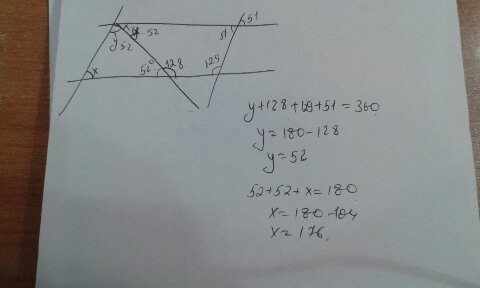 51
y 52
51
y 52
x
52°
128
129
y+128+129+51=360
y=180-128
y=52
52+52+x=180
x=180-104
x=176